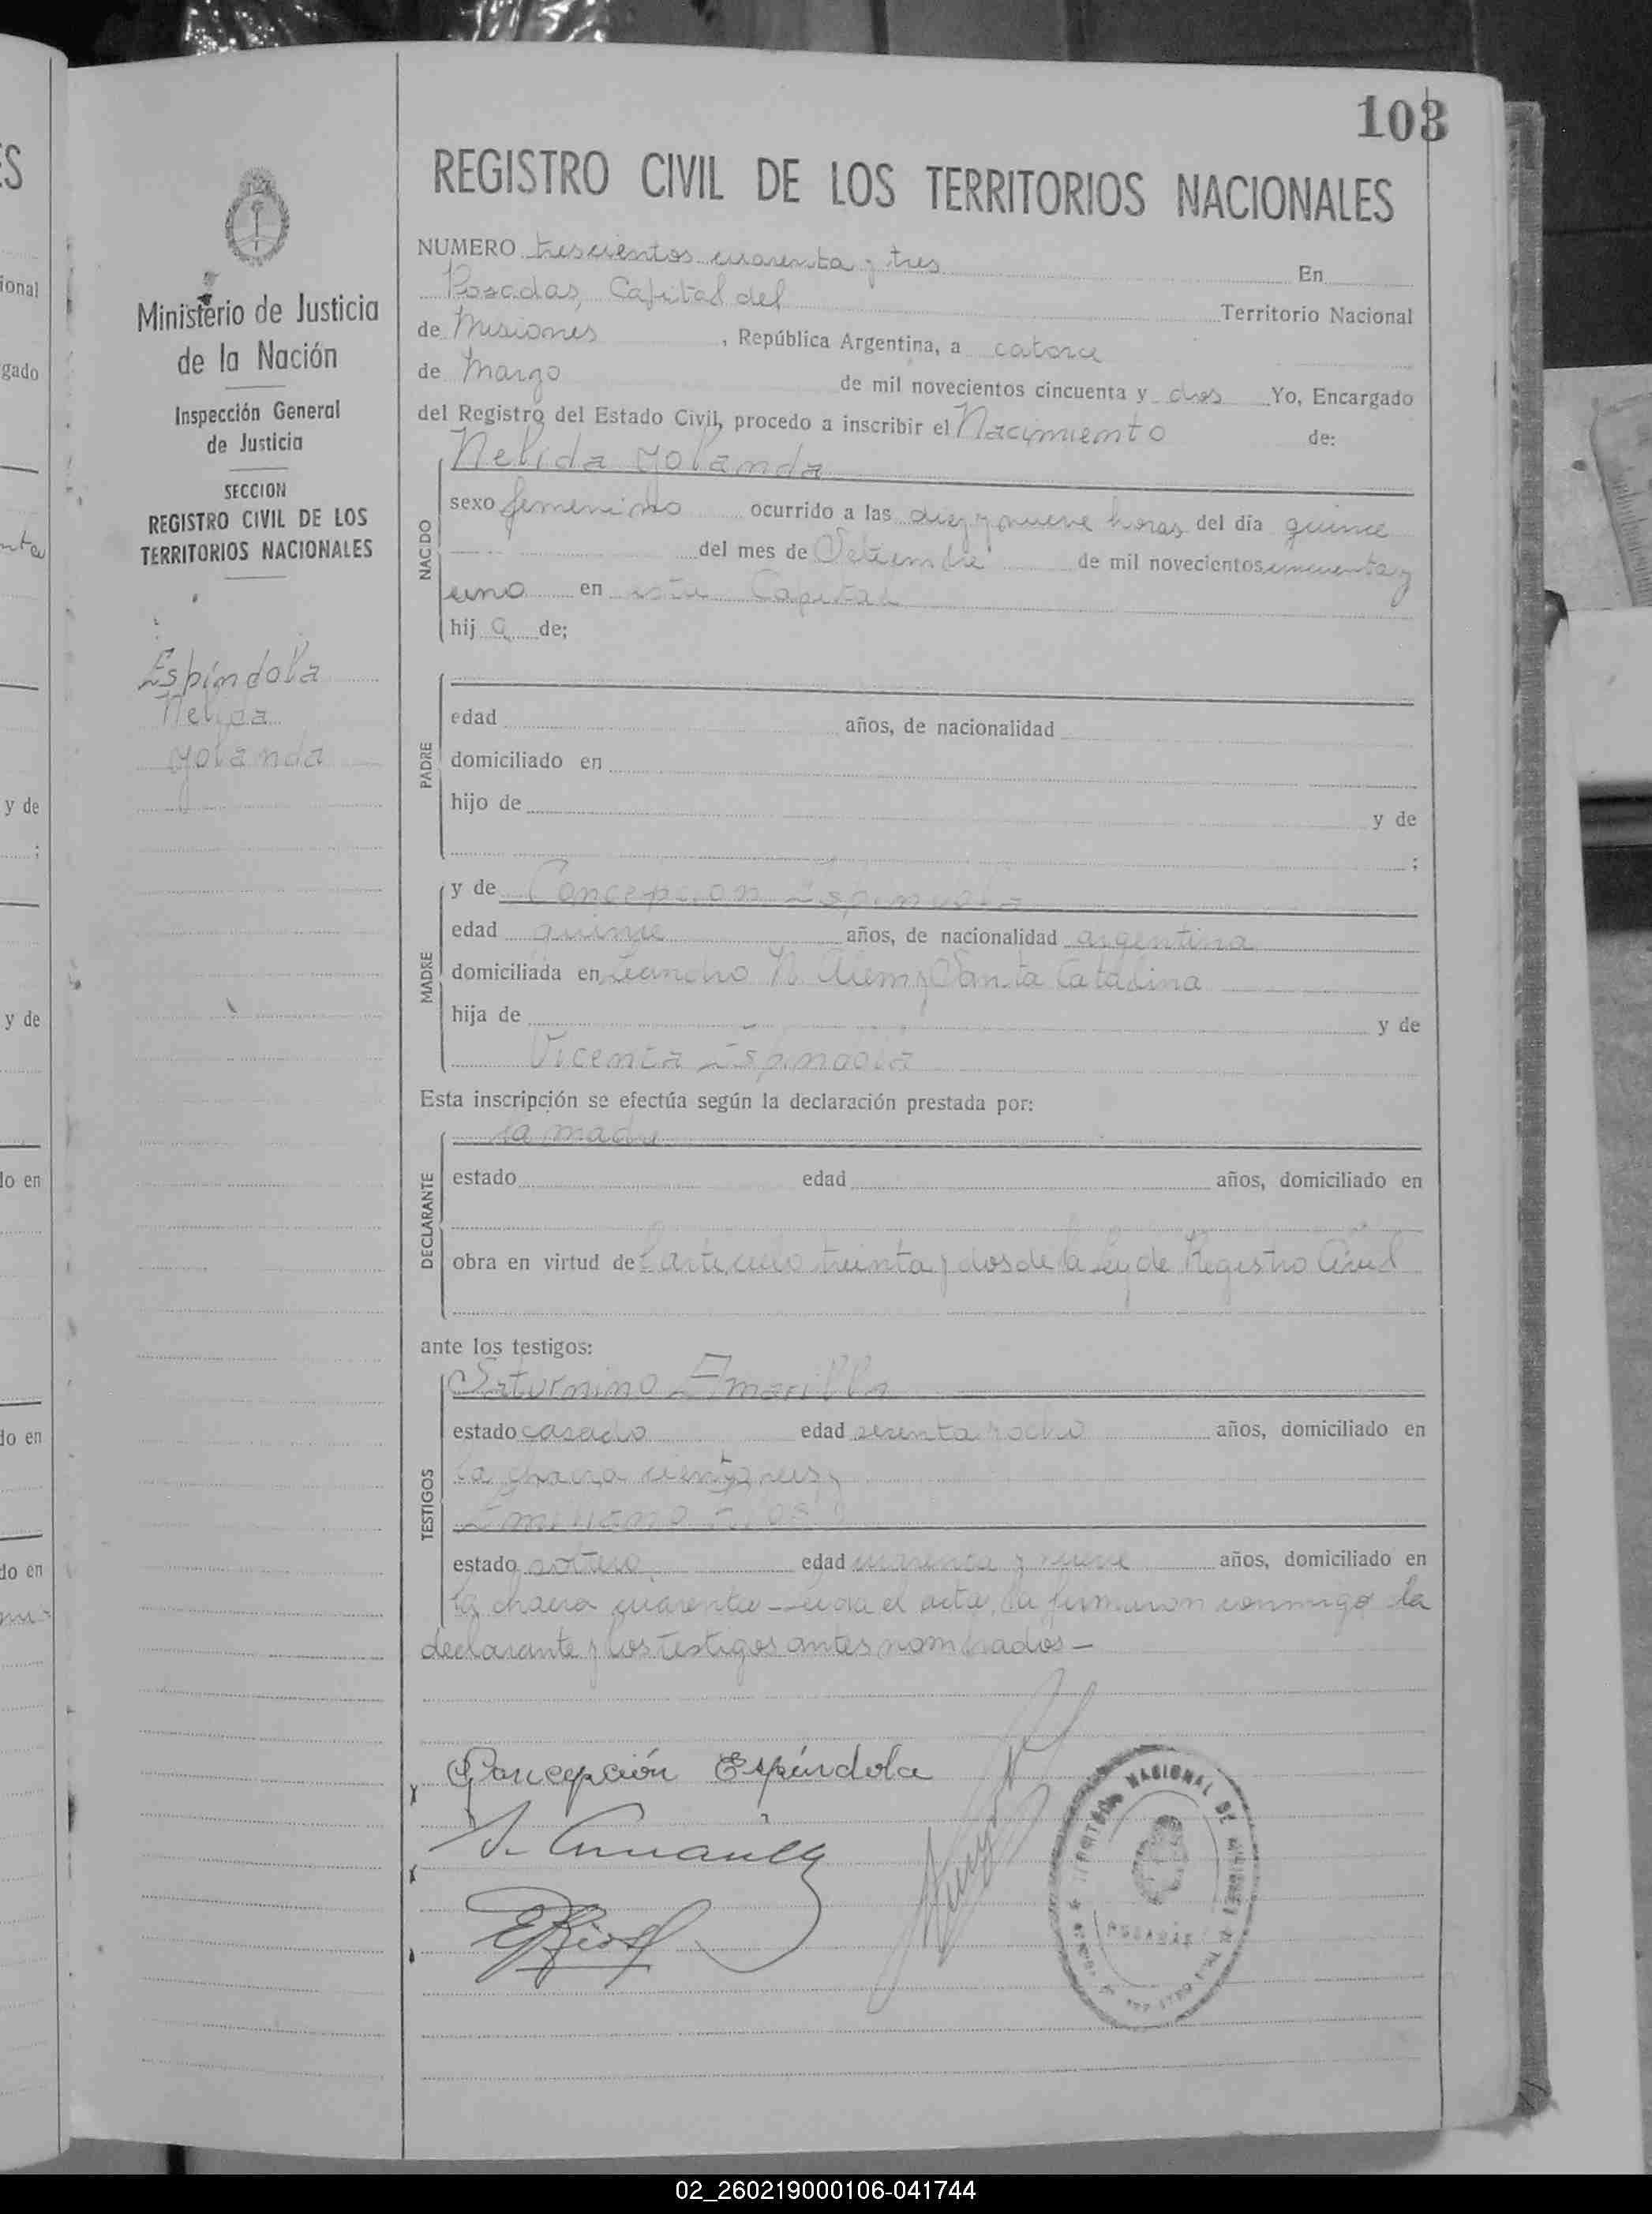 103
REGISTRO CIVIL DE LOS TERRITORIOS NACIONALES
Ministerio de Justicia
de la Nación
Inspección General
de Justicia
SECCION
REGISTRO CIVIL DE LOS
TERRITORIOS NACIONALES
Espíndola
Nelida
Yolanda
NUMERO trescientos cuarenta y tres En
Posadas, Capital del Territorio Nacional
de Misiones , República Argentina, a catorce
de Marzo de mil novecientos cincuenta y dos Yo, Encargado
del Registro del Estado Civil, procedo a inscribir el Nacimiento de:
NACIDO
Nelida Yolanda
sexo femenino ocurrido a las diez y nueve horas del día quince
del mes de Setiembre de mil novecientos cincuenta y
uno en esta Capital
hij a de;
PADRE
edad años, de nacionalidad
domiciliado en
hijo de y de
;
MADRE
y de Concepción Espíndola
edad quince años, de nacionalidad argentina
domiciliada en Leandro N. Alem y Santa Catalina
hija de y de
Vicenta Espíndola
Esta inscripción se efectúa según la declaración prestada por:
DECLARANTE
la madre
estado edad años, domiciliado en
obra en virtud del artículo treinta y dos de la Ley de Registro Civil
ante los testigos:
TESTIGOS
Saturnino Amarilla
estado casado edad sesenta y ocho años, domiciliado en
la chacra ciento
Emiliano Rios
estado soltero, edad cuarenta y nueve años, domiciliado en
la chacra cuarenta - Leida el acta, la firmaron conmigo la
declarante y los testigos antes nombrados -
Concepción Espíndola
S. Amarilla
E Rios
TERRITORIO NACIONAL DE MISIONES
POSADAS
ional
gado
y de
;
y de
do en
do en
do en
02_260219000106-041744